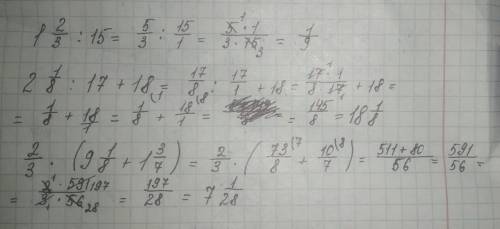 1 2/3 : 15 = 5/3 : 15/1 = 5¹ · 1 / 3 · 15₃ = 1/9
2 1/8 : 17 + 18 = 17/8 : 17/1 + 18 = 17¹ · 1 / 8 · 17₁ + 18 =
= 1/8 + 18/1 = 1/8 (1 + 18/1 (8 = 145/8 = 18 1/8
2/3 · (9 1/8 + 1 3/7) = 2/3 · (73/8 (7 + 10/7 (8) = 511 + 80 / 56 = 591/56 =
= 2¹ · 591 197 / 3₁ · 56 28 = 197/28 = 7 1/28